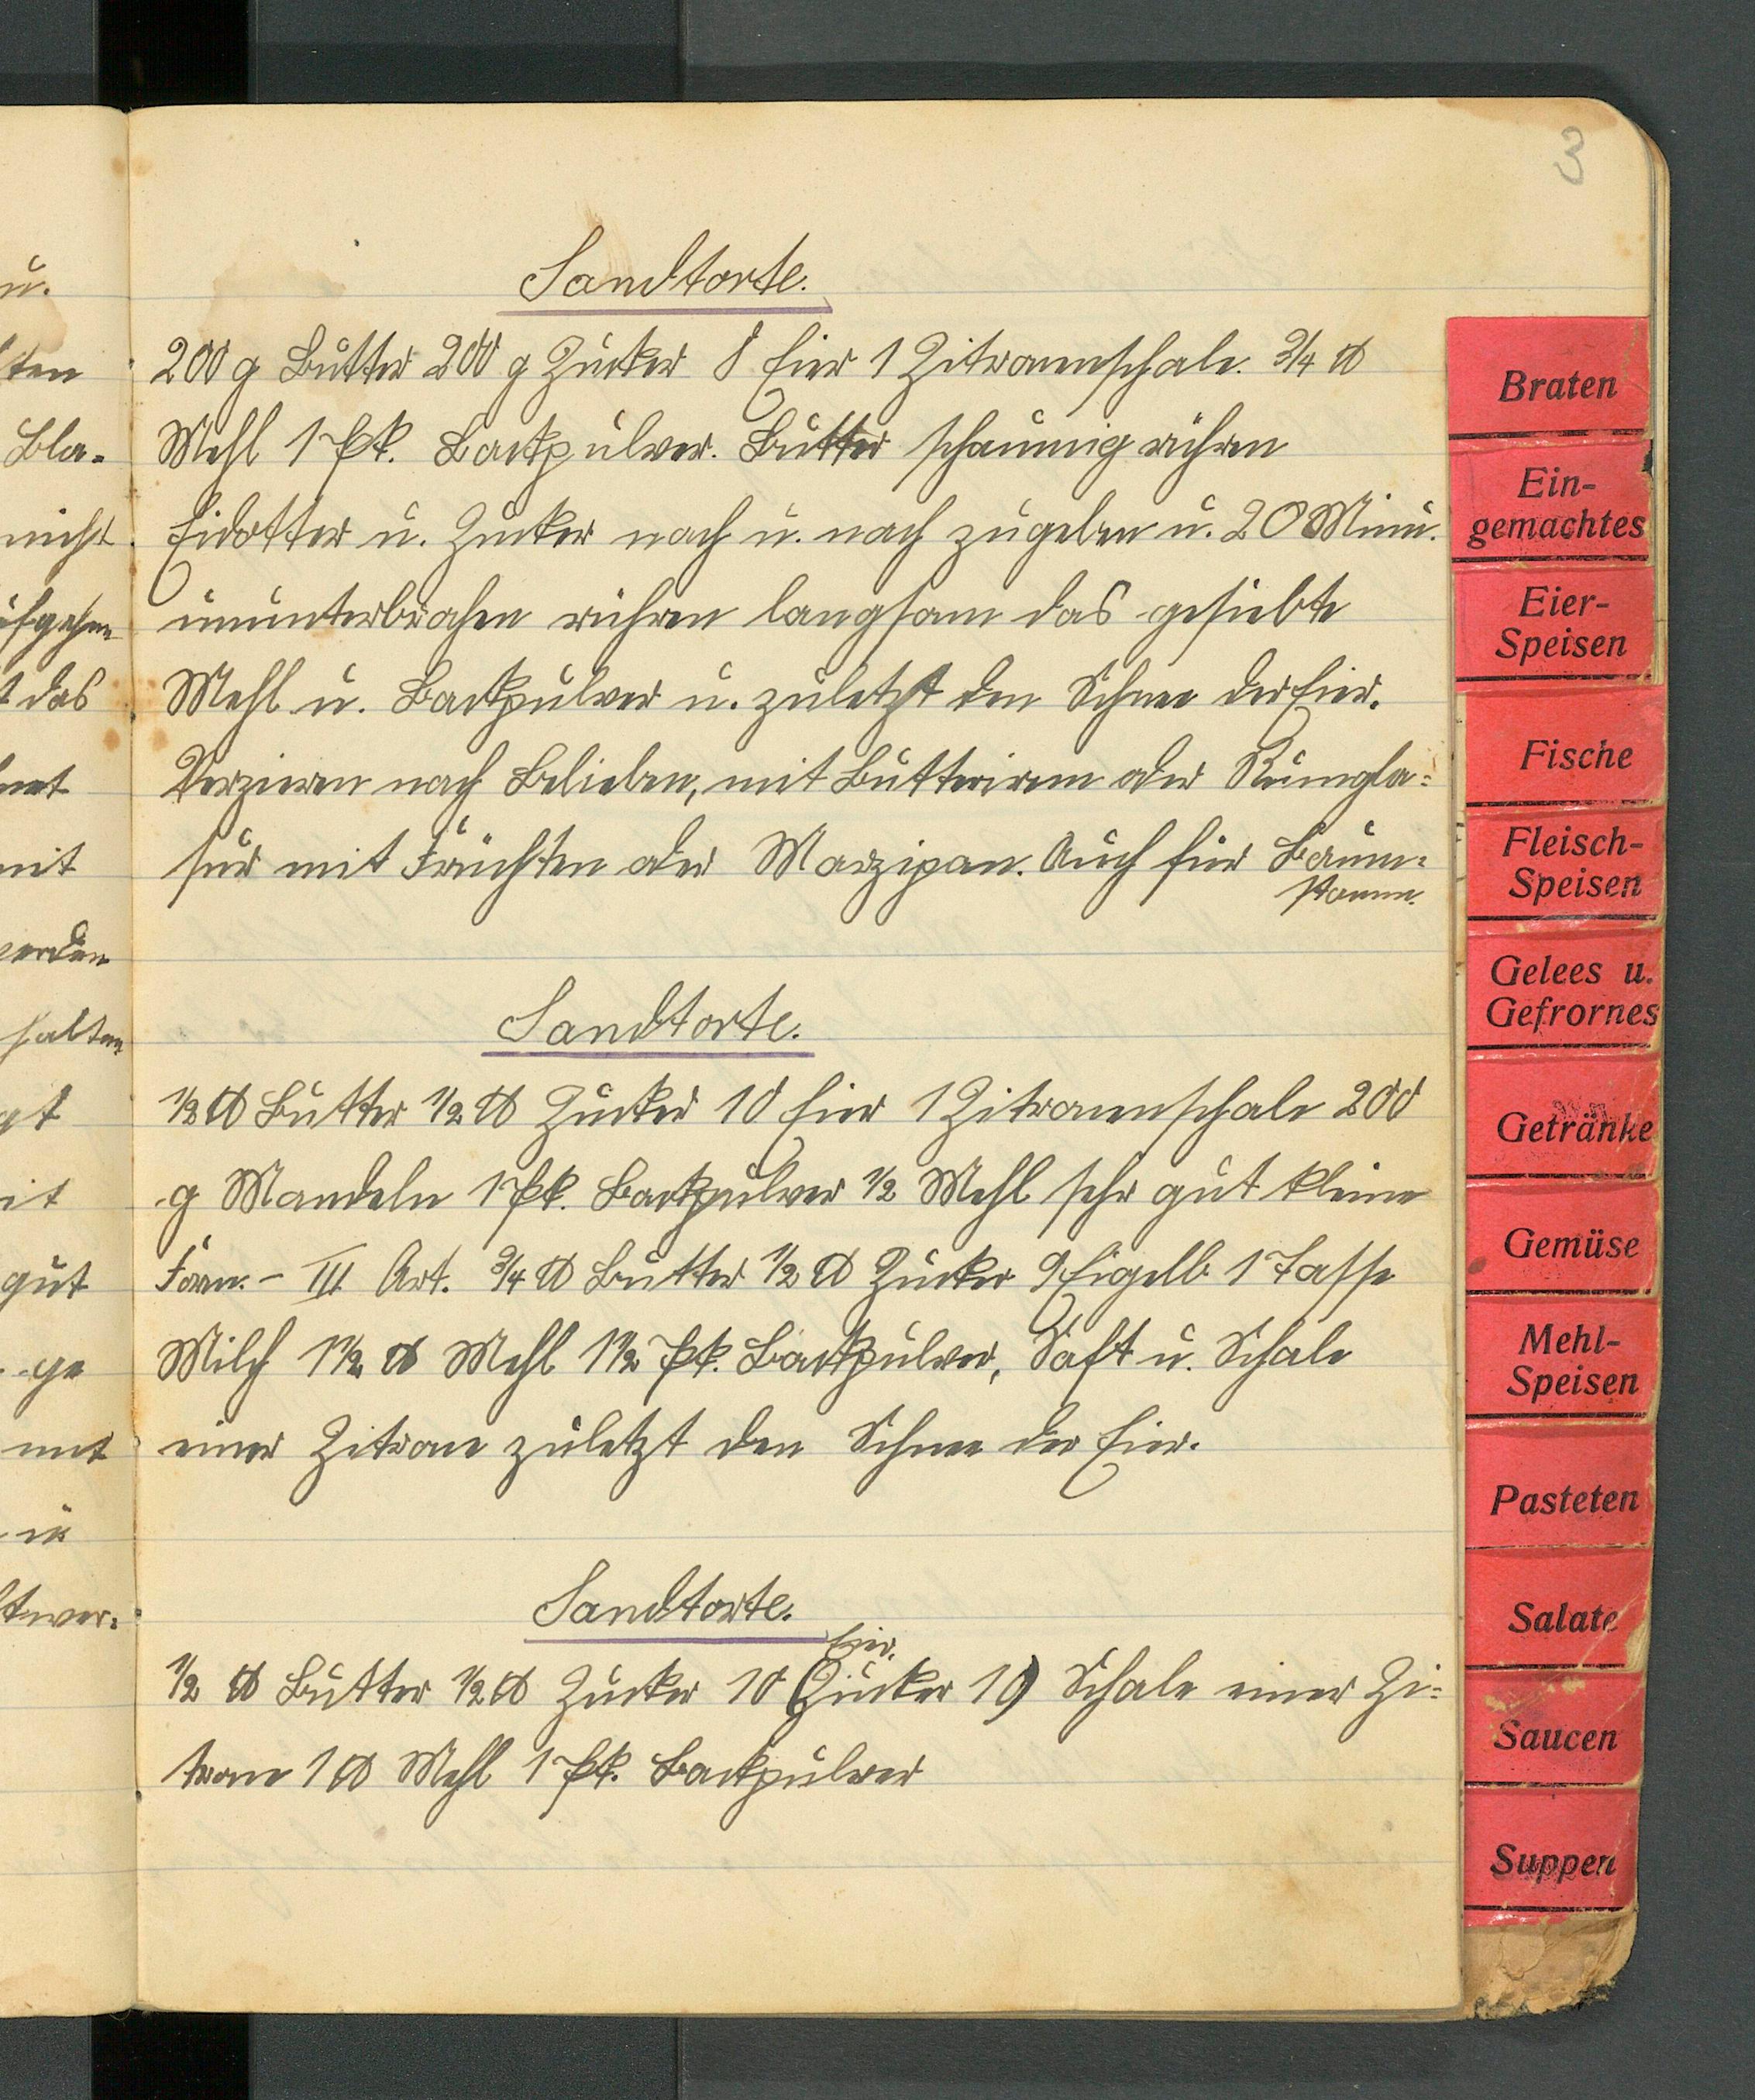 u.
ten
Bla-
nicht
ufgehen
t das
mit
werden
halten
gut
ge
3
Sandtorte.
200 g Butter 200 g Zucker 8 Eier 1 Zitronenschale. ¾ ℔
Mehl 1 Pk. Backpulver. Butter schaumig rühren
Eidotter u. Zucker nach u. nach zugeben u. 20 Minu.
ununterbrochen rühren langsam das gesiebte
Mehl u. Backpulver u. zuletzt den Schnee der Eier.
Verzieren nach Belieben, mit Buttercrem oder Rumgla=
sur mit Früchten oder Marzipan. Auch für Baum=
stamm.
Sandtorte.
½ ℔ Butter ½ ℔ Zucker 10 Eier 1 Zitronenschale 200
g Mandeln 1 Pk. Backpulver ½ Mehl sehr gut kleine
Form. – III Art. ¾ ℔ Butter ½ ℔ Zucker 9 Eigelb 1 Tasse
Milch 1½ ℔ Mehl 1½ Pk. Backpulver, Saft u. Schale
einer Zitrone zuletzt den Schnee der Eier.
Sandtorte.
Eier.
½ ℔ Butter ½ ℔ Zucker 10 (Zucker 10) Schale einer Zi=
trone 1 ℔ Mehl 1 Pk. Backpulver
Braten
Ein-
gemachtes
Eier-
Speisen
Fische
Fleisch-
Speisen
Gelees u.
Gefrornes
Getränke
Gemüse
Mehl-
Speisen
Pasteten
Salate
Saucen
Suppen